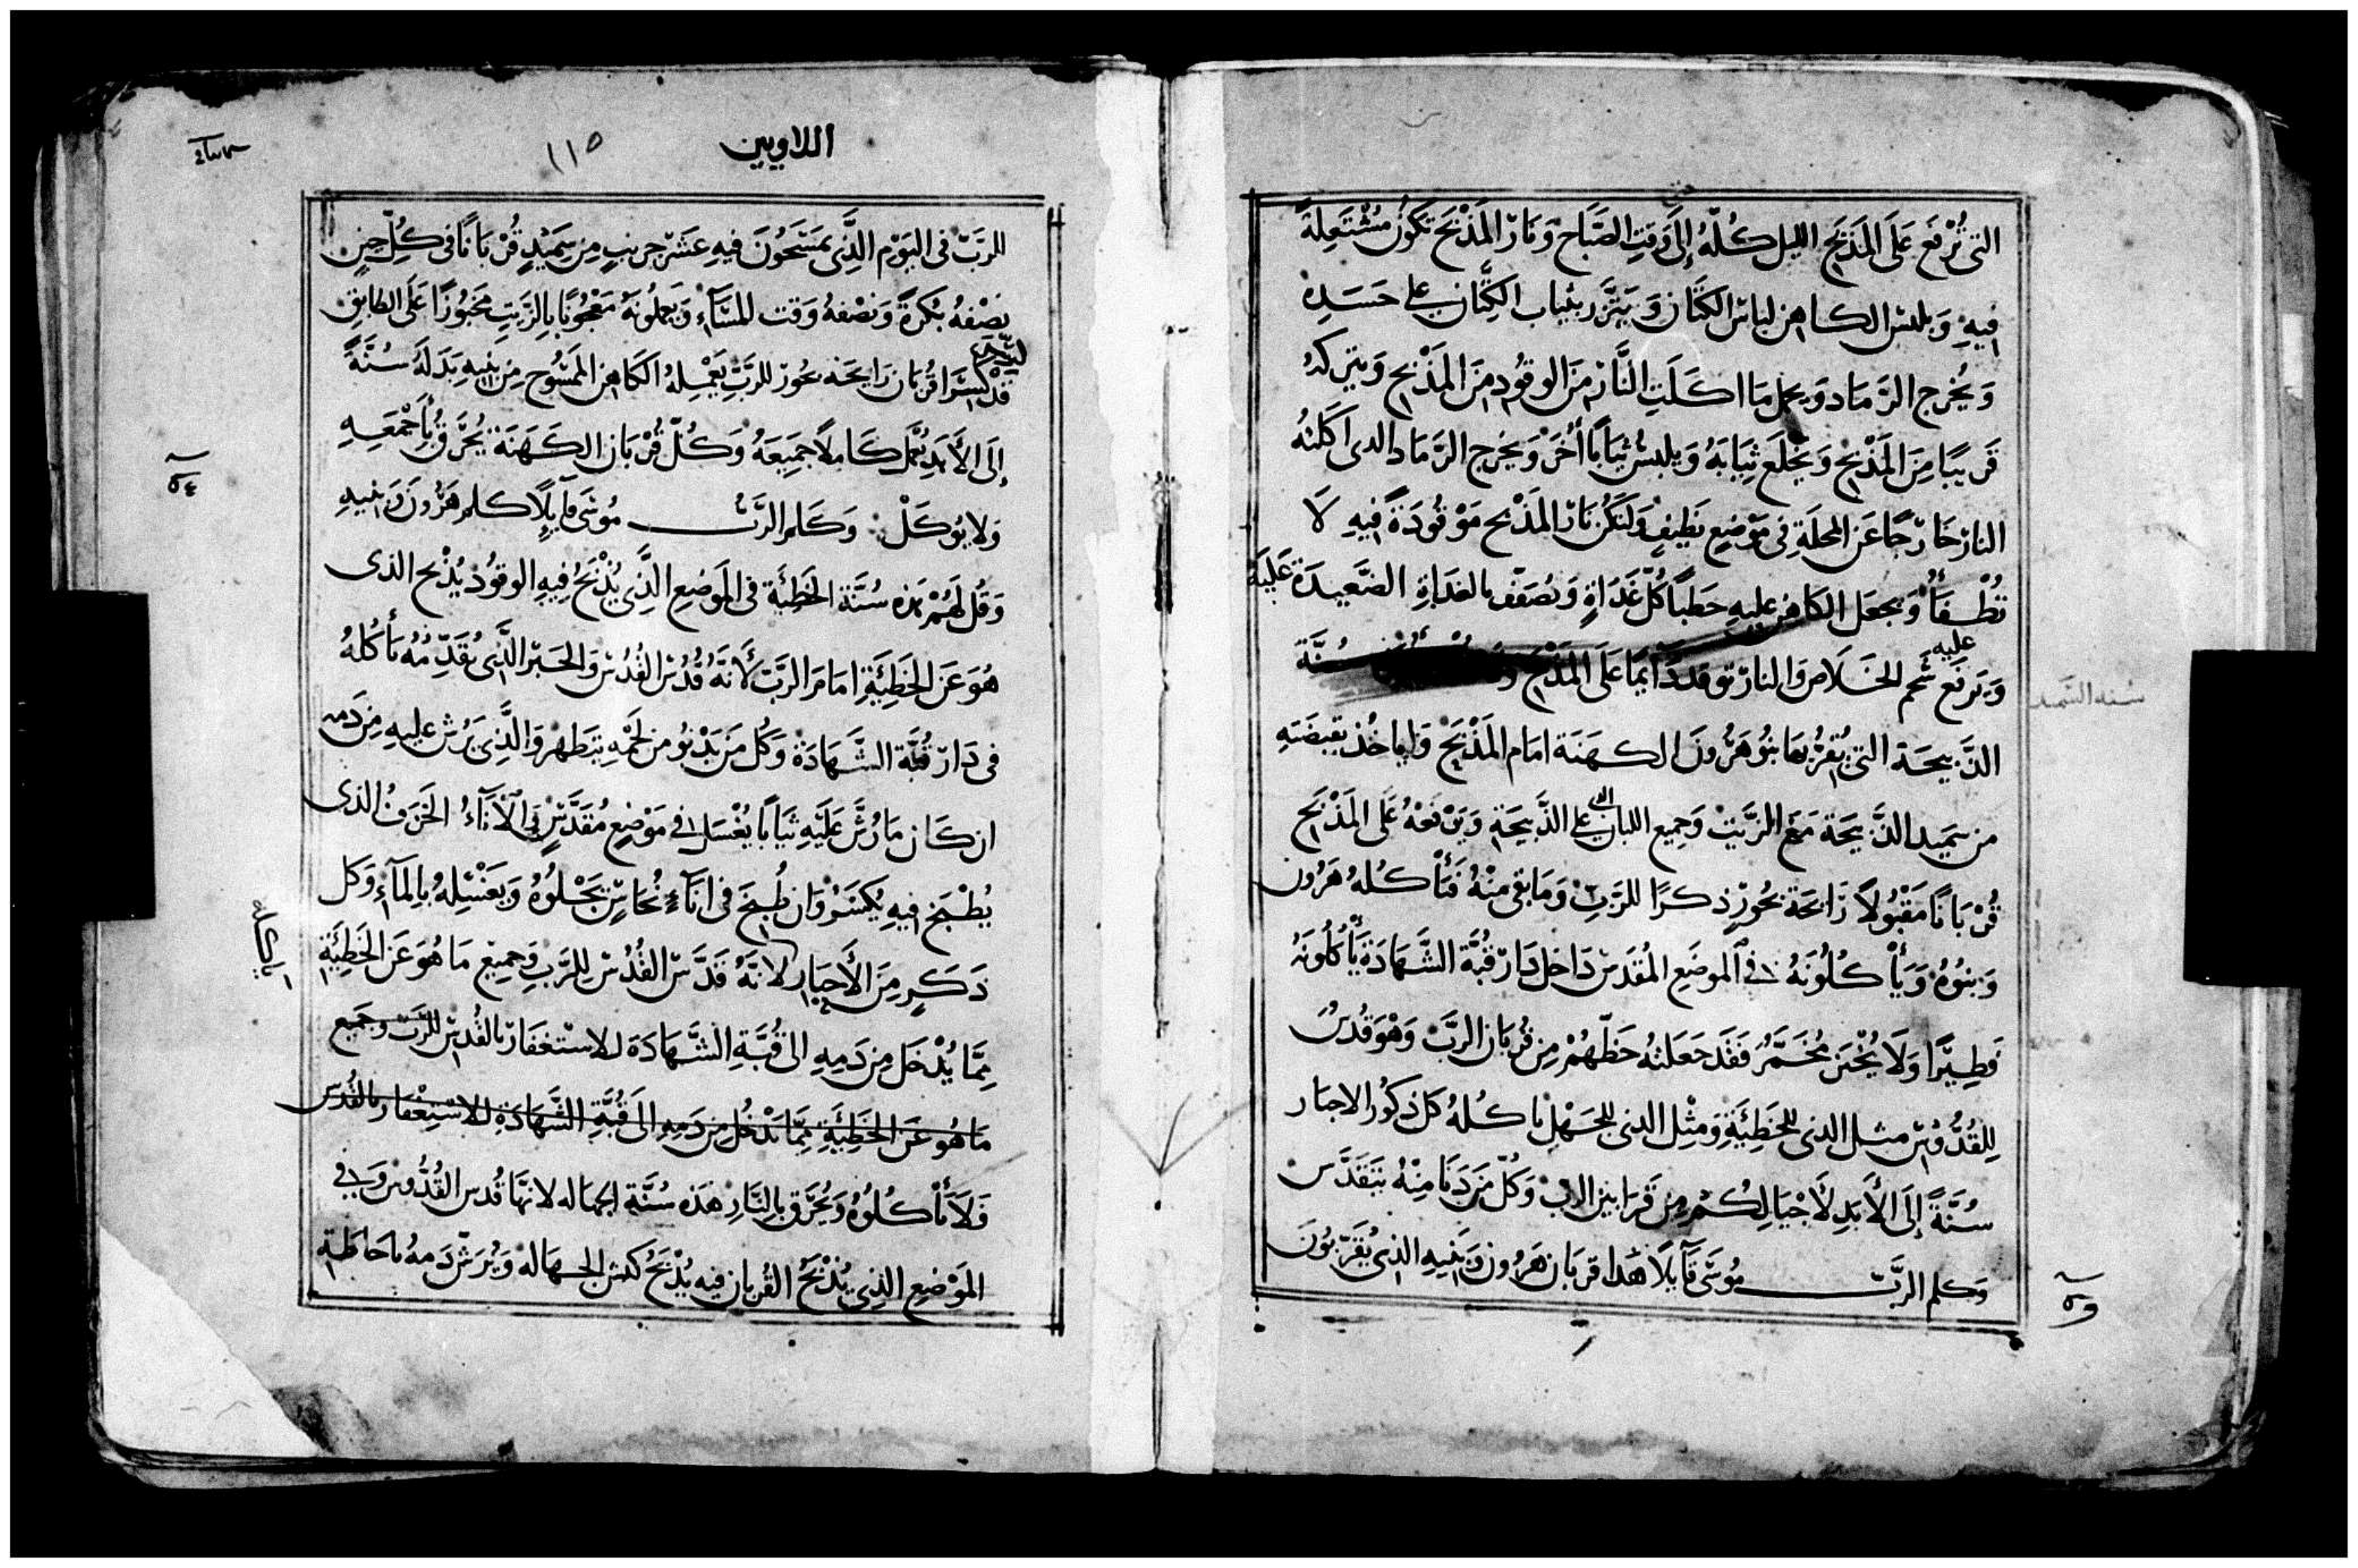 التي تُرْفَع عَلَى المَذْبَحِ الليل كُلّهُ إِلَى وَقتِ الصَّبَاح وَنَارُ المَذْبَح تكُونُ مُشْتَعِلَةً
فِيهِ وَيلبسُ الكاهِن لِباسَ الكتَّان وَيتَّزر بثياب الكِتَّان على جَسَدِهِ
وَيُخرج الرَّمَاد وَيحمل مَا اكَلَتِ النَّارُ مِنَ الوقُودِ مِنَ المَذْبَحِ وَيتركهُ
قَرِيبًا مِنَ المَذْبَحِ وَيَخْلَع ثِيَابَهُ وَيلبسُ ثِيَابًا أُخَرَ وَيخرج الرَّمَاد الدى اكَلتهُ
النارُ خَارِجًا عَن المحلَةِ فِى مَوْضِعٍ نَظِيفٍ وَلتَكُن نَارُ المَذْبَح مَوْقُودَةً فِيهِ لاَ
تُطْفَأْ وَيجعَل الكَاهِن عليهِ حَطبًا كُلّ غَدَاةٍ وَيُصَفف بالغدَاةِ الصَّعِيدَة عَليهِ
عليه
وَيَرفَع شَحم الخَلاص وَالنارُ توقد دَايمًا عَلَى المَذْبَح سُنَّة
سنه السَّميد
الذَّبِيحَة التى يُقَرِّبهَا بَنُو هَرُونَ الكهَنَة امَام المَذْبَح وَلياخُذ بقبضَتِهِ
من سَمِيد الذَّبِيحَة مَعَ الزَّيت وَجَمِيع اللبان التى على الذَّبِيحَةِ وَيَرْفعهُ عَلَى المَذْبَح
قُرْبَانًا مَقْبُولاً رَايحَة بخُورٍ ذِكرًا للرَّبِّ وَمَا بقى مِنْهُ فَيَأْكُلهُ هَرُون
وَبنُوهُ وَيَأْكُلُونَهُ فى الموضَعِ المُقَدَس دَاخِل دَار قُبَّة الشَّهَادَة يَأْكُلُونَهُ
فَطِيرًا وَلاَ يُخْبَز مُخَمَّرُ فَقَد جَعَلتهُ حَظّهُمْ مِن قُربَان الرَّبّ وَهْوَ قُدسُ
لِلقُدُّوسُ مثل الذى للخَطِيَّةِ وَمِثْل الذى للجَهْلِ ياكُلهُ كل ذكُور الاحبار
سُنَّةً إِلَى الأَبَدِ لأَجْيَالِكُمْ مِن قَرَابِين الرب وَكُلّ مَن دَنَا مِنْهُ يَتَقَدَّس
وَكلم الرَّبّ مُوسَى قَآيلاً هَدا قربَان هَرُون وَبَنِيهِ الذِى يُقَرِّبُونَ
اللاويين
١١٥
للرَبّ فى اليَوْم الَّذِى يمسَحُونَ فيهِ عَشر جريبٍ مِن سَمِيْدٍ قُرْبَانًا فى كُلِّ حِينٍ
نِصْفهُ بُكرَةً وَنصْفهُ وَقت المسَآءِ وَيَعملُونَهُ مَعْجُونًا بِالزَّيتِ مخبُوزًا عَلَى الطابق
إِلَى الأَبَدِ يُكمل كَاملاً جَمِيعَهُ وَكُلّ قُرْبَان الكَهَنَة يُحرَق بأَجْمَعِهِ
وَلا يُوكَلْ وَكَلم الرَّبّ مُوسَى قَآيلاً كلم هَرُونَ وَبنيهِ
وَقُل لَهُمْ هَذه سُنَّة الخَطِيَّة فى المَوضِعِ الَّذِى يُذْبَحُ فِيهِ الوقُود يُذْبح الذى
هُوَ عَن الخَطِيَّةِ امَامَ الرَّبّ لأَنَّهُ قُدْسُ القُدسِ وَالحَبْر الَّذِى يُقَدِّمُهُ يَأكُلهُ
فى دَار قُبَّة الشَّهَادَة وَكُل مَن يَدْنُو من لَحْمِهِ يَتَطهر وَالَّذِى يَرُش عليهِ مِن دَمه
ان كَان مَا رُشَّ عَلَيْهِ ثيَابًا يُغْسَل فى مَوْضِعٍ مُقَدَّسٍ وَالأنَآءُ الخَزَفُ الذى
يُطْبَخ فِيهِ يُكسَرُ وَان طُبِخَ فى انَآءِ نُحَاسٍ يَجْلوُهُ وَيَغْسِلهُ بِالمآءِ وَكل
ذَكَرٍ مِنَ الأَحبَارِ لاَنَّهُ قَدَّسُ القُدُسْ لِلرَّبِّ وَجَمِيْع مَا هُوَ عَن الخَطِيَّةِ
مِمَّا يُدْخَل مِن دَمِهِ الى قُبَّةِ الشَّهَادَة للاسْتغفَار بالقُدسِ للرَّبّ وَجَمِيع
مَا هُوَ عَن الخَطِيَّةِ مِمَّا يَدْخُل مِن دَمِهِ الَى قُبَّةِ الشَّهَادَةِ للاسْتِغْفَار بالقُدس
فَلاَ يَأْكُلُوهُ وَيُحرَق بِالنَّارِ هَذه سُنَّة الجهاله لانهَا قُدس القُدُّوس وَفى
المَوْضِعِ الذِى يُذْبَحُ القُربَان فِيه يُذْبَحُ كبش الجهاله وَيُرَشّ دَمهُ باحَاطَةِ